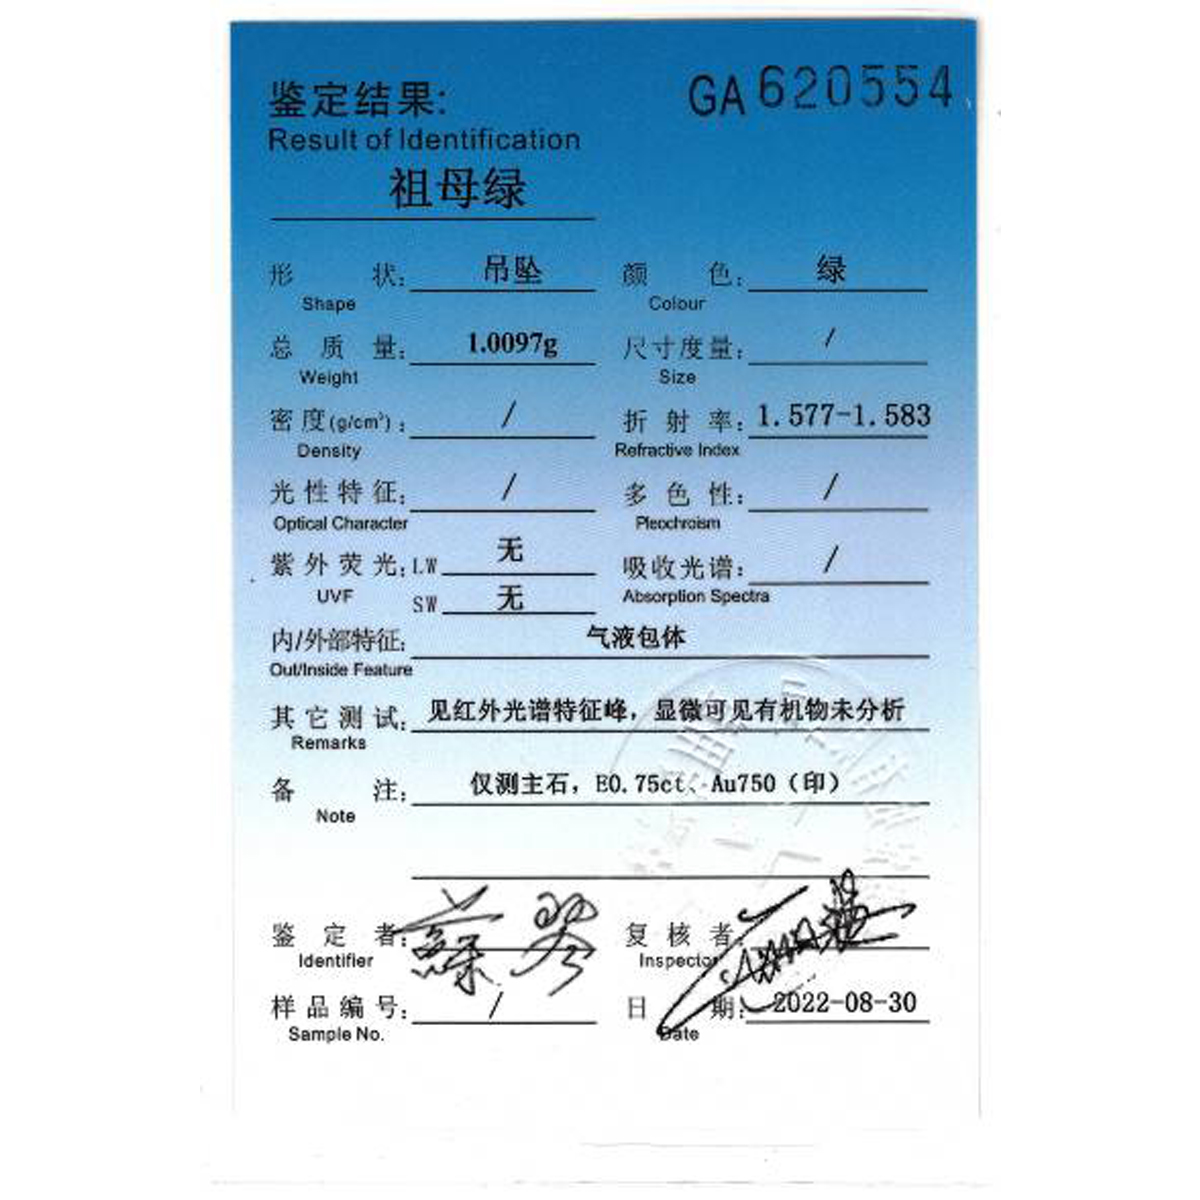 鉴定结果:
GA620554
Result of Identification
祖母绿
形 状: 吊坠 颜 色: 绿
Shape Colour
总 质 量: 1.0097g 尺寸度量: /
Weight Size
密度(g/cm³): / 折 射 率: 1.577-1.583
Density Refractive Index
光性特征: / 多 色 性: /
Optical Character Pleochroism
紫外荧光: LW 无 吸收光谱: /
UVF SW 无 Absorption Spectra
内/外部特征: 气液包体
Out/Inside Feature
其它测试: 见红外光谱特征峰，显微可见有机物未分析
Remarks
备 注: 仅测主石，E0.75ct、Au750（印）
Note
鉴 定 者: 复 核 者:
Identifier Inspector
样品编号: / 日 期: 2022-08-30
Sample No. Date